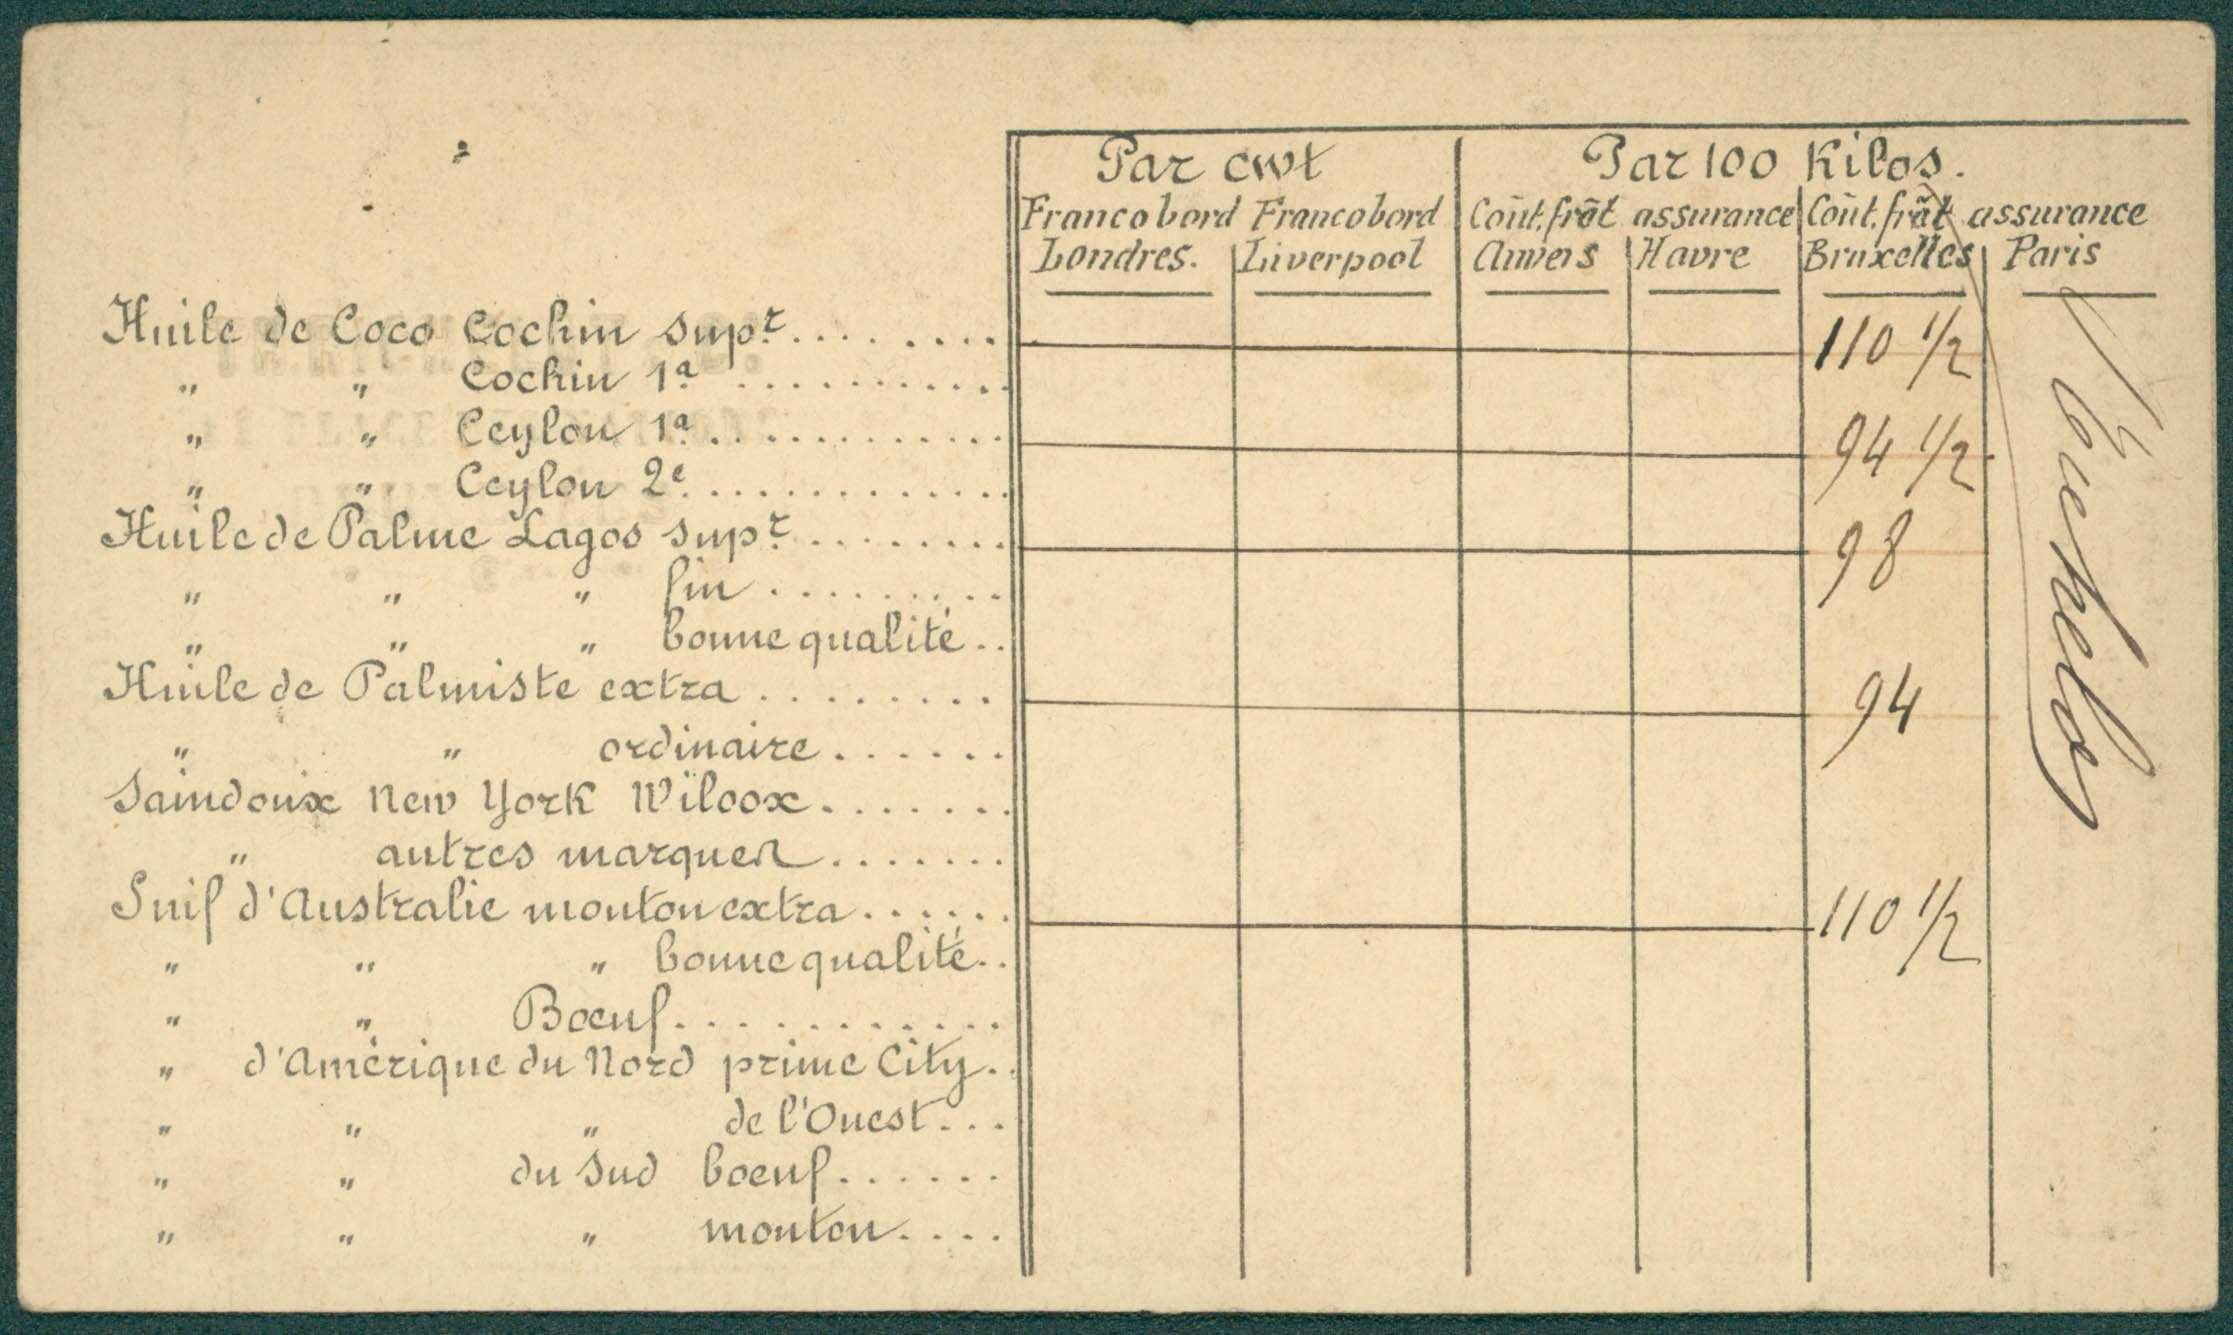 Par cwt Par 100 Kilos.
Franco bord Franco bord Coût, frêt assurance Coût, frêt assurance
Londres. Liverpool Anvers Havre Bruxelles Paris
Huile de Coco Cochin sup.r........ 110 1/2
" " Cochin 1a............
" " Ceylon 1a............ 94 1/2
" " Ceylon 2e............
Huile de Palme Lagos sup.r........ 98
" " " fin.........
" " " bonne qualité..
Huile de Palmiste extra......... 94
" " ordinaire.......
Saindoux New York Wilcox.......
" autres marques.......
Suif d'Australie mouton extra...... 110 1/2
" " " bonne qualité..
" " Bœuf............
" d'Amérique du Nord prime City..
" " " de l'Ouest...
" " du Sud bœuf......
" " " mouton....